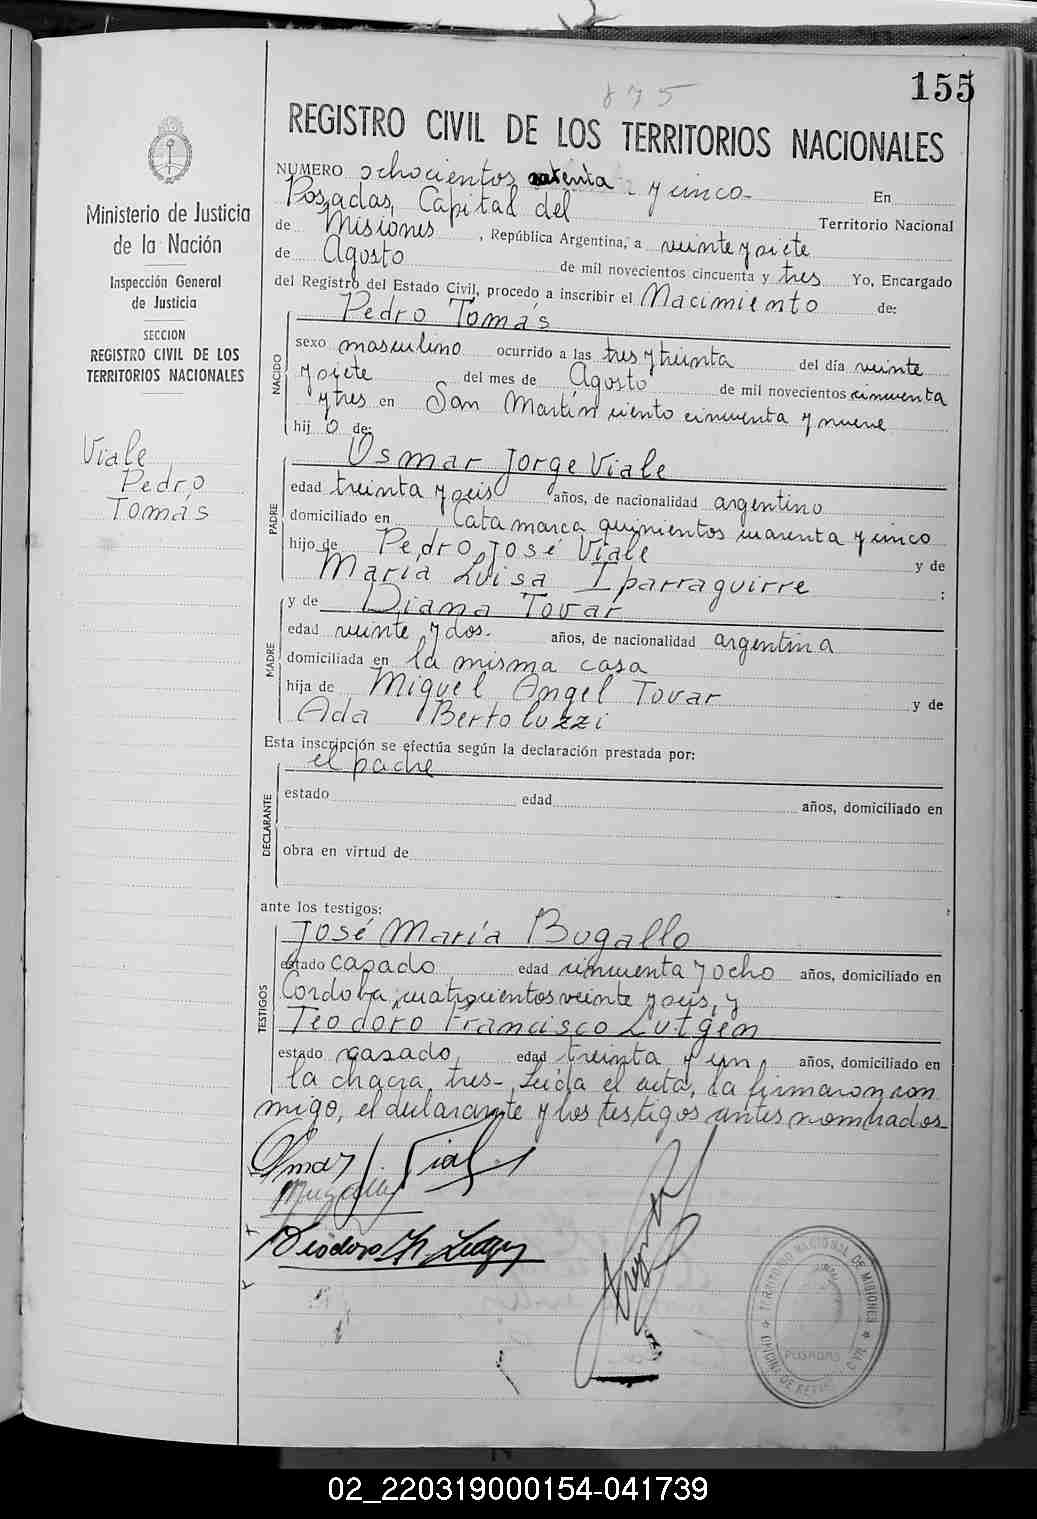 155
875
REGISTRO CIVIL DE LOS TERRITORIOS NACIONALES
Ministerio de Justicia
de la Nación
Inspección General
de Justicia
SECCION
REGISTRO CIVIL DE LOS
TERRITORIOS NACIONALES
Viale
Pedro
Tomás
NUMERO ochocientos setenta y cinco - En
Posadas, Capital del Territorio Nacional
de Misiones, República Argentina, a veinte y siete
de Agosto de mil novecientos cincuenta y tres Yo, Encargado
del Registro del Estado Civil, procedo a inscribir el Nacimiento de:
Pedro Tomás
NACIDO
sexo masculino ocurrido a las tres y treinta del día veinte
y siete del mes de Agosto de mil novecientos cincuenta
y tres en San Martín ciento cincuenta y nueve
hij o de:
Osmar Jorge Viale
PADRE
edad treinta y seis años, de nacionalidad argentino
domiciliado en Catamarca quinientos cuarenta y cinco
hijo de Pedro José Viale y de
María Luisa Iparraguirre :
y de Diana Tovar
MADRE
edad veinte y dos. años, de nacionalidad argentina
domiciliada en la misma casa
hija de Miguel Angel Tovar y de
Ada Bertoluzzi
Esta inscripción se efectúa según la declaración prestada por:
el padre
DECLARANTE
estado edad años, domiciliado en
obra en virtud de
ante los testigos:
José María Bugallo
TESTIGOS
estado casado edad cincuenta y ocho años, domiciliado en
Cordoba, cuatrocientos veinte y seis, y
Teodoro Francisco Lutgen
estado casado, edad treinta y un, años, domiciliado en
la chacra tres-, Leída el acta, la firmaron con
migo, el declarante y los testigos antes nombrados-
Osmar J. Viale
Teodoro Fr. Lutgen
TERRITORIO NACIONAL DE MISIONES
POSADAS
OFICINA DE REGISTRO CIVIL
02_220319000154-041739